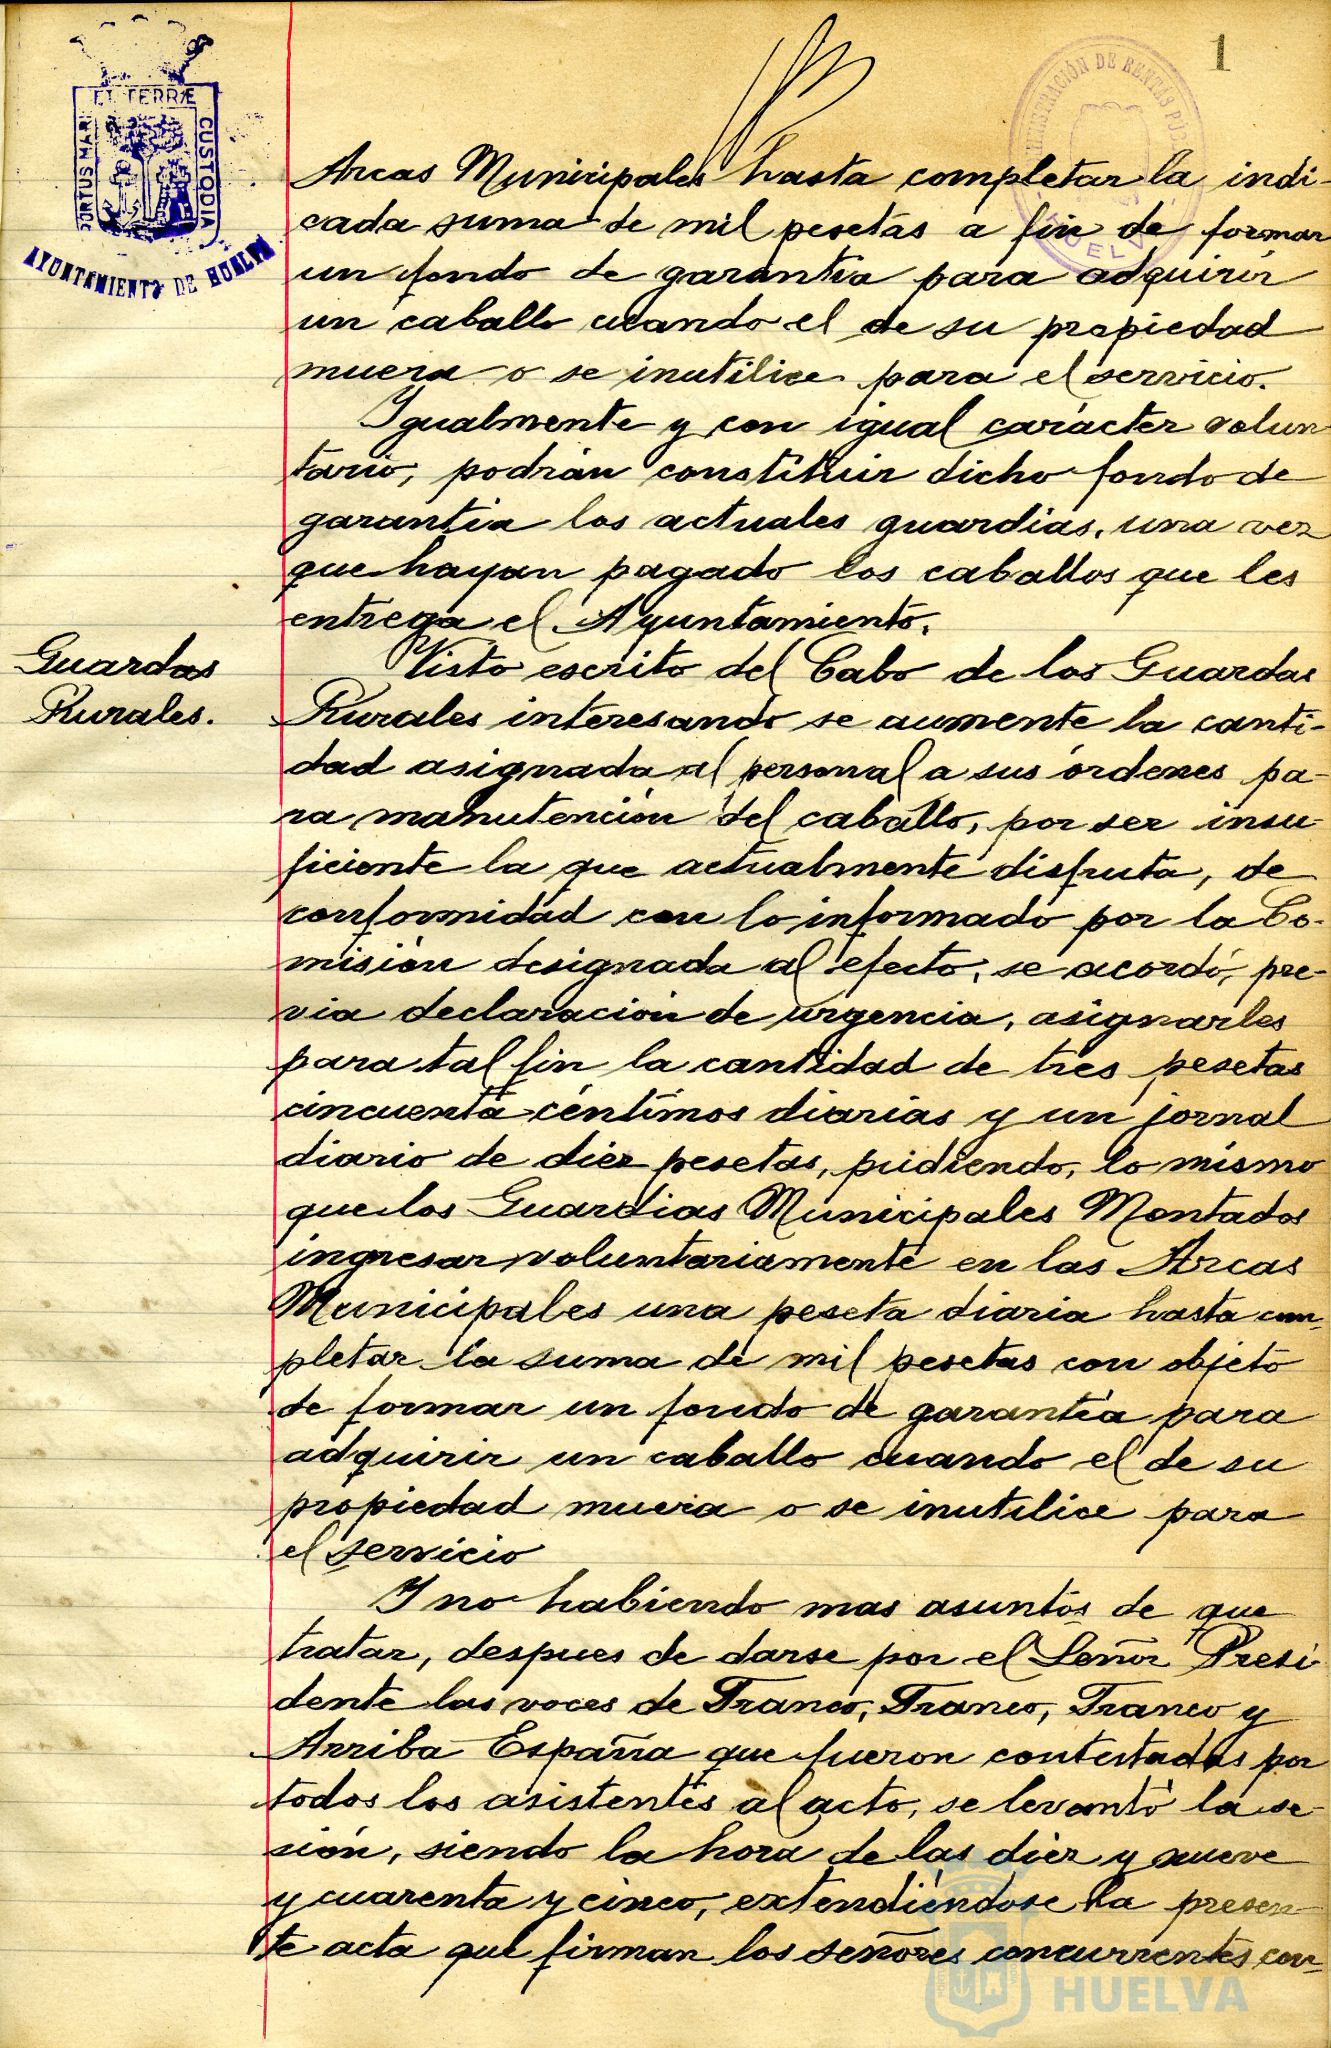 1
ET TERRÆ
PORTUS MARIS
CUSTODIA
AYUNTAMIENTO DE HUELVA
ADMINISTRACIÓN DE RENTAS PÚBLICAS
HUELVA
Arcas Municipales hasta completar la indi-
cada suma de mil pesetas a fin de formar
un fondo de garantía para adquirir
un caballo cuando el de su propiedad
muera o se inutilice para el servicio.
Igualmente y con igual carácter volun
tario, podrán constituir dicho fondo de
garantia los actuales guardias, una vez
que hayan pagado los caballos que les
entrega el Ayuntamiento.
Guardas
Rurales.
Visto escrito del Cabo de los Guardas
Rurales interesando se aumente la canti-
dad asignada al personal a sus órdenes pa-
ra manutención del caballo, por ser insu-
ficiente la que actualmente disfruta, de
conformidad con lo informado por la Co-
misión designada al efecto, se acordó, pre-
via declaración de urgencia, asignarles
para tal fin la cantidad de tres pesetas
cincuenta céntimos diarias y un jornal
diario de diez pesetas, pudiendo, lo mismo
que los Guardias Municipales Montados
ingresar voluntariamente en las Arcas
Municipales una peseta diaria hasta com-
pletar la suma de mil pesetas con objeto
de formar un fondo de garantía para
adquirir un caballo cuando el de su
propiedad muera o se inutilice para
el servicio
Y no habiendo mas asuntos de que
tratar, despues de darse por el Señor Presi
dente las voces de Franco, Franco, Franco y
Arriba España que fueron contestadas por
todos los asistentes al acto, se levantó la se-
sión, siendo la hora de las diez y nueve
y cuarenta y cinco, extendiéndose la presen-
te acta que firman los señores concurrentes con-
HUELVA